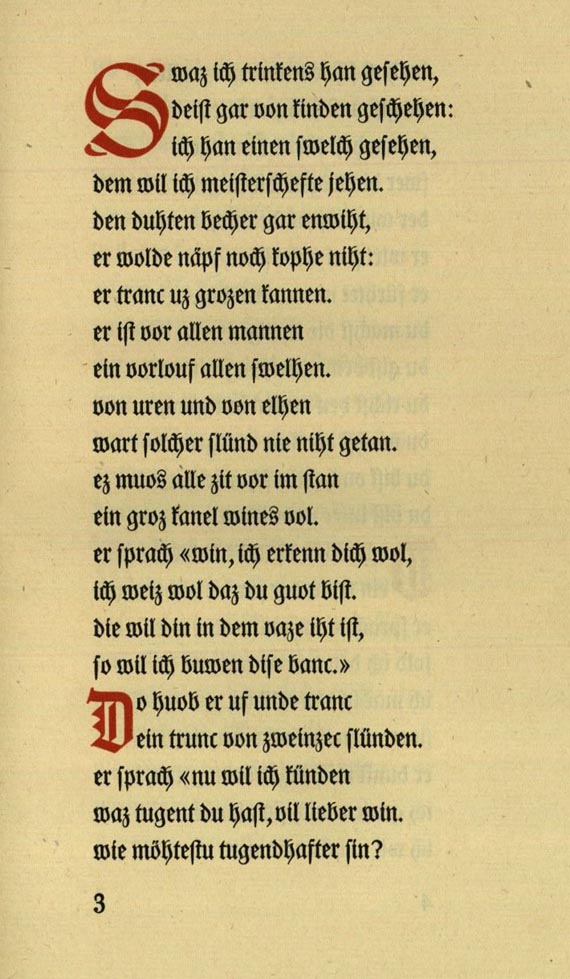 Swaz ich trinkens han gesehen,
deist gar von kinden geschehen:
ich han einen swelch gesehen,
dem wil ich meisterschefte jehen.
den duhten becher gar enwiht,
er wolde näpf noch kophe niht:
er tranc uz grozen kannen.
er ist vor allen mannen
ein vorlouf allen swelhen.
von uren und von elhen
wart solcher slünd nie niht getan.
ez muos alle zit vor im stan
ein groz kanel wines vol.
er sprach «win, ich erkenn dich wol,
ich weiz wol daz du guot bist.
die wil din in dem vaze iht ist,
so wil ich buwen dise banc.»
Do huob er uf unde tranc
ein trunc von zweinzec slünden.
er sprach «nu wil ich künden
waz tugent du hast, vil lieber win.
wie möhtestu tugendhafter sin?
3